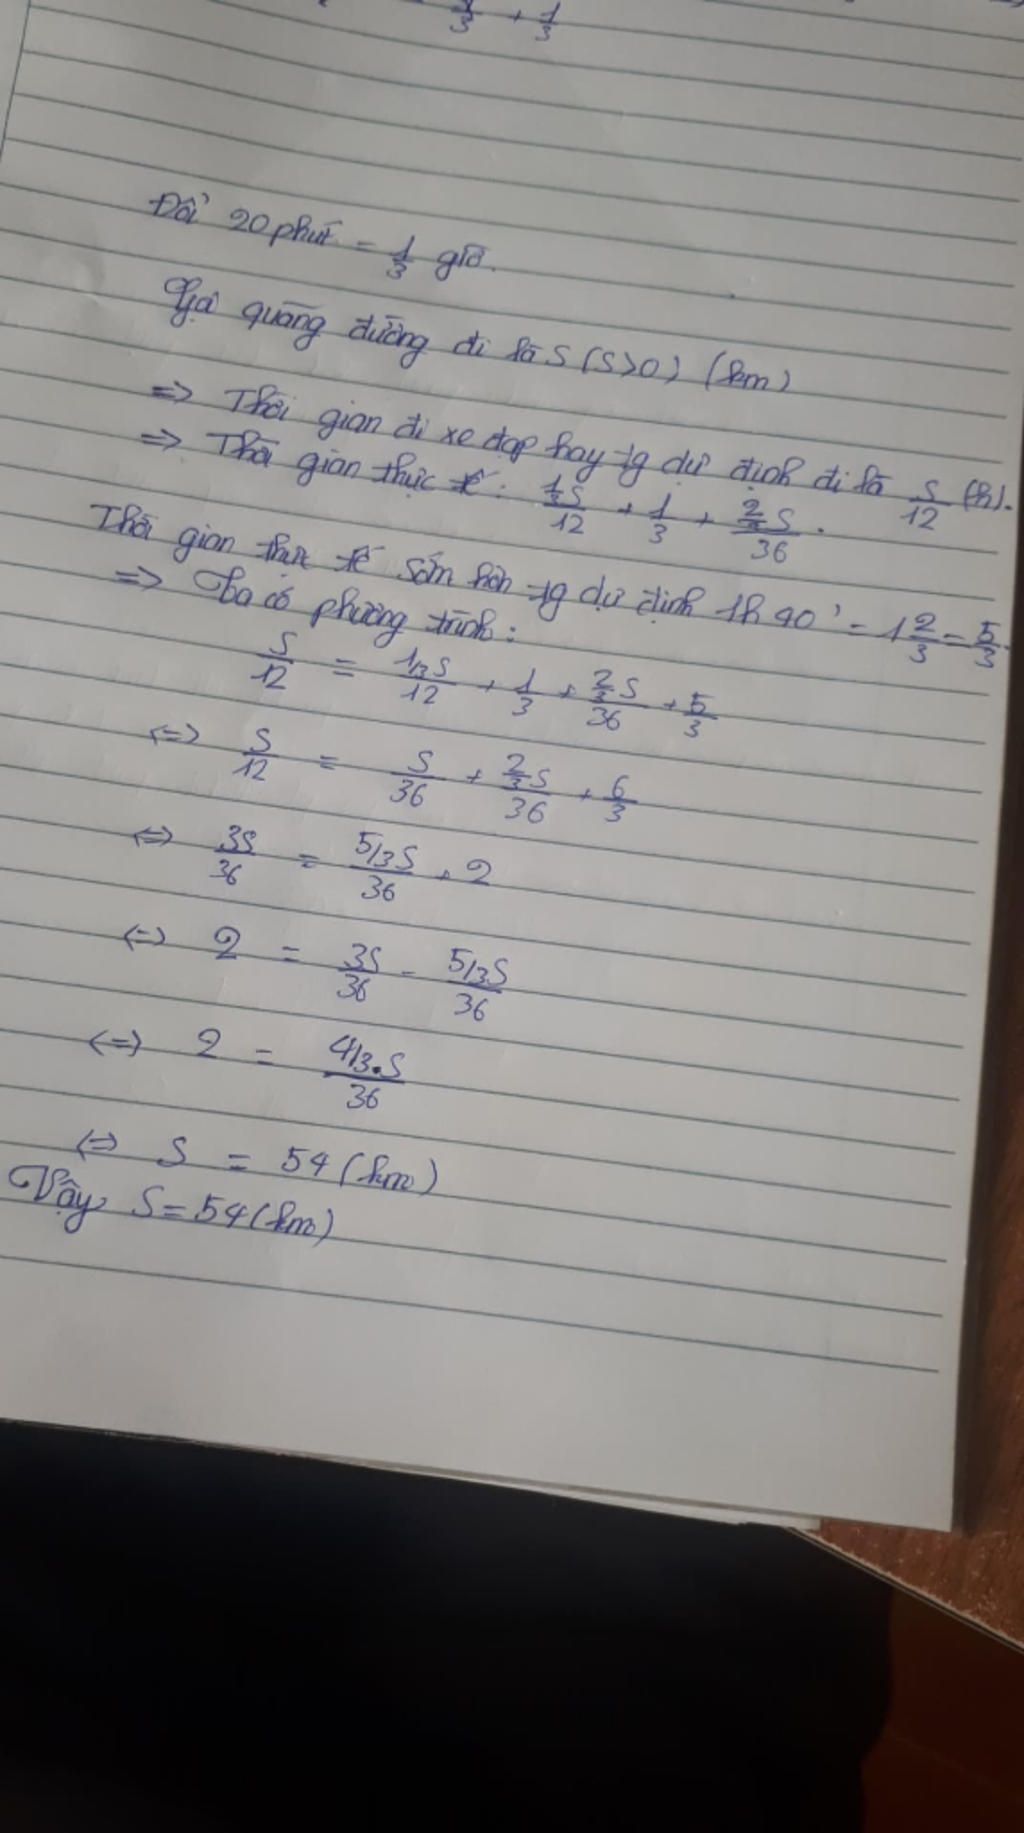 1/3 + 1/3
Đổi 20 phút = 1/3 giờ.
Gọi quãng đường đi là S (S>0) (km)
=> Thời gian đi xe đạp hay tg dự định đi là S/12 (h).
=> Thời gian thực tế: 1/3S/12 + 1/3 + 2/3S/36.
Thời gian thực tế sớm hơn tg dự định 1h40' = 1 2/3 = 5/3.
=> Ta có phương trình:
S/12 = 1/3S/12 + 1/3 + 2/3S/36 + 5/3
<=> S/12 = S/36 + 2/3S/36 + 6/3
<=> 3S/36 = 5/3S/36 + 2
<=> 2 = 3S/36 - 5/3S/36
<=> 2 = 4/3.S/36
<=> S = 54 (km)
Vậy S = 54 (km)